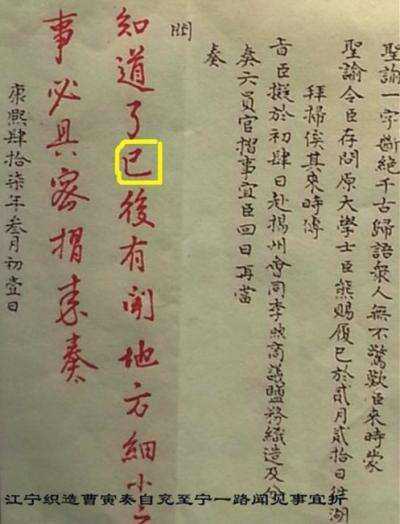 聖諭一字斷絕千古歸語衆人無不驚歎臣來時蒙
聖諭令臣存問原大學士臣熊賜履已於貳月貳拾日往湖
拜掃俟其來時傳
旨臣擬於初肆日赴揚州會同李煦商議鹽務織造及
奏六員官摺事宜臣回日再當
奏
聞
知道了已後有聞地方細小之
事必具密摺來奏
康熙肆拾柒年叁月初壹日
江宁织造曹寅奏自兖至宁一路闻见事宜折